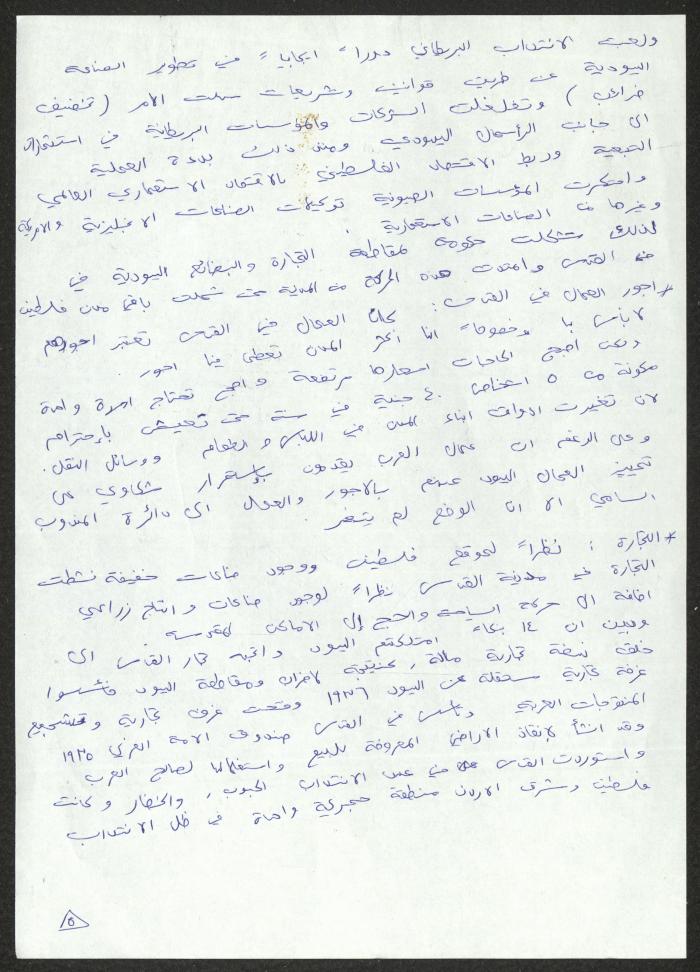 ولعبت الانتداب البريطاني دوراً ايجابياً في تطوير الصناعة
اليهودية عن طريق قوانين وتشريعات سهلت الأمر (تخفيف
ضرائب) وتغلغلت الشركات والمؤسسات البريطانية في استثمارات
الى جانب الرأسمال اليهودي ومنذ ذلك بدء العملية
التبعية وربط الاقتصاد الفلسطيني بالاقتصاد الاستعماري العالمي
واحتكرت المؤسسات الصهيونية توكيلات الصناعات الانجليزية والامريكية
وغيرها من الصناعات الاستعمارية.
لذلك شكلت حكومة لمقاطعة التجارة والبضائع اليهودية في
في القدس وامتدت هذه الحركة من المدينة حتى شملت باقي مدن فلسطين
* اجور العمال في القدس: كان العمال في القدس تعتبر اجورهم
لا بأس بها وخصوصاً انها اكثر المدن تعطى فيها اجور.
ولكن اصبح الحاجات اسعارها مرتفعة واصبح تحتاج اسرة واحدة
مكونة من ٥ اشخاص ٤٠ جنيه في سنة حتى تعيش بإحترام
لان تغيرت اذواق ابناء المدن في اللباس والطعام ووسائل النقل.
وعلى الرغم ان عمال العرب يقدمون بإستمرار شكاوي على
تمييز العمال اليهود عنهم بالاجور والعمل الى دائرة المندوب
السامي الا ان الوضع لم يتغير.
* التجارة: نظراً لموقع فلسطين ووجود صناعات خفيفة نشطت
التجارة في مدينة القدس نظراً لوجود صناعات وانتاج زراعي
اضافة الى حركة السياحة والحج إلى الاماكن المقدسة.
وتبين ان ١٤ امتلكتهم اليهود واتجه تجار القدس الى
خلق نهضة تجارية مالية، كنتيجة لاضراب ومقاطعة اليهود فأسسوا
غرفة تجارية مستقلة عن اليهود ١٩٣٦ وفتحت غرف تجارية وتشجيع
المنتوجات العربية وتأسس في القدس صندوق الامة العربي ١٩٣٥
وقد انشأ لإنقاذ الاراضي المعروضة للبيع واستغلالها لصالح العرب
واستوردت القدس في عهد الانتداب الحبوب، والخضار وكانت
فلسطين وشرق الاردن منطقة جمركية واحدة في ظل الانتداب
٥